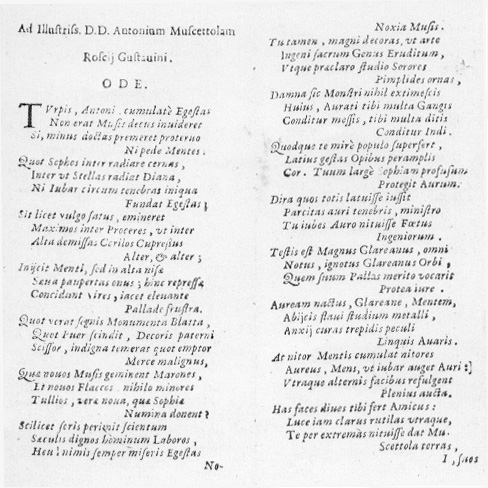 Ad Illustriss. D.D. Antonium Muscettolam
Roscij Gustauini.
ODE.
TVrpis, Antoni, cumulatè Egestas
Non erat Musis decus inuideret
Si, minus doctas premeret proteruo
Ni pede Mentes.
Quot Sophos inter radiare cernas,
Inter vt Stellas radiat Diana,
Ni Iubar circum tenebras iniqua
Fundat Egestas;
Sit licet vulgo satus, emineret
Maximos inter Proceres, vt inter
Alta demissas Cupressus
Alter, & alter;
Inijcit Menti, sed in alta nisæ
Sæua paupertas onus; hinc repressæ
Concidunt vires; iacet eleuante
Pallade frustra.
Quot verat segnis Monumenta Blatta,
Quot Puer scindit, Decoris paterni
Scissor, indigna temerat quot emptor
Merce malignus,
Quæ nouos Musis geminent Marones,
Et nouos Flaccos nihilo minores
Tullios, vere noua, quæ Sophiæ
Numina donent?
Scilicet seris periuit scientum
Sæculis dignos hominum Laboros,
Heu! nimis semper miseris Egestas
No-
Noxia Musis.
Tu tamen, magni decoras, vt arte
Ingenî sacrum Genus Eruditum,
Vtque præclaro studio Sorores
Pimplides ornas,
Damna sic Monstri nihil extimescis
Huius, Aurati tibi multa Gangis
Conditur messis, tibi multa ditis
Conditur Indi.
Quodque te mirè populo superfert,
Latius gestas Opibus peramplis
Cor. Tuum largè Sophiam profusum
Protegit Aurum.
Dira quos totis latuisse iussit
Parcitas auri tenebris, ministro
Tu iubes Auro nituisse Fœtus
Ingeniorum.
Testis est Magnus Glareanus, omni
Notus, ignotus Glareanus Orbi,
Quem suum Pallas merito vocarit
Protea iure.
Auream nactus, Glareane, Mentem,
Abijcis flaui studium metalli,
Anxij curas trepidis peculi
Linquis Auaris.
At nitor Mentis cumulat nitores
Aureus, Mens, vt iubar auget Auri:
Vtraque alternis facibus refulgent
Plenius aucta.
Has faces diues tibi fert Amicus:
Luce iam clarus rutilas vtraque,
Te per extremas nituisse dat Mu-
Scettola terras,
I, suos